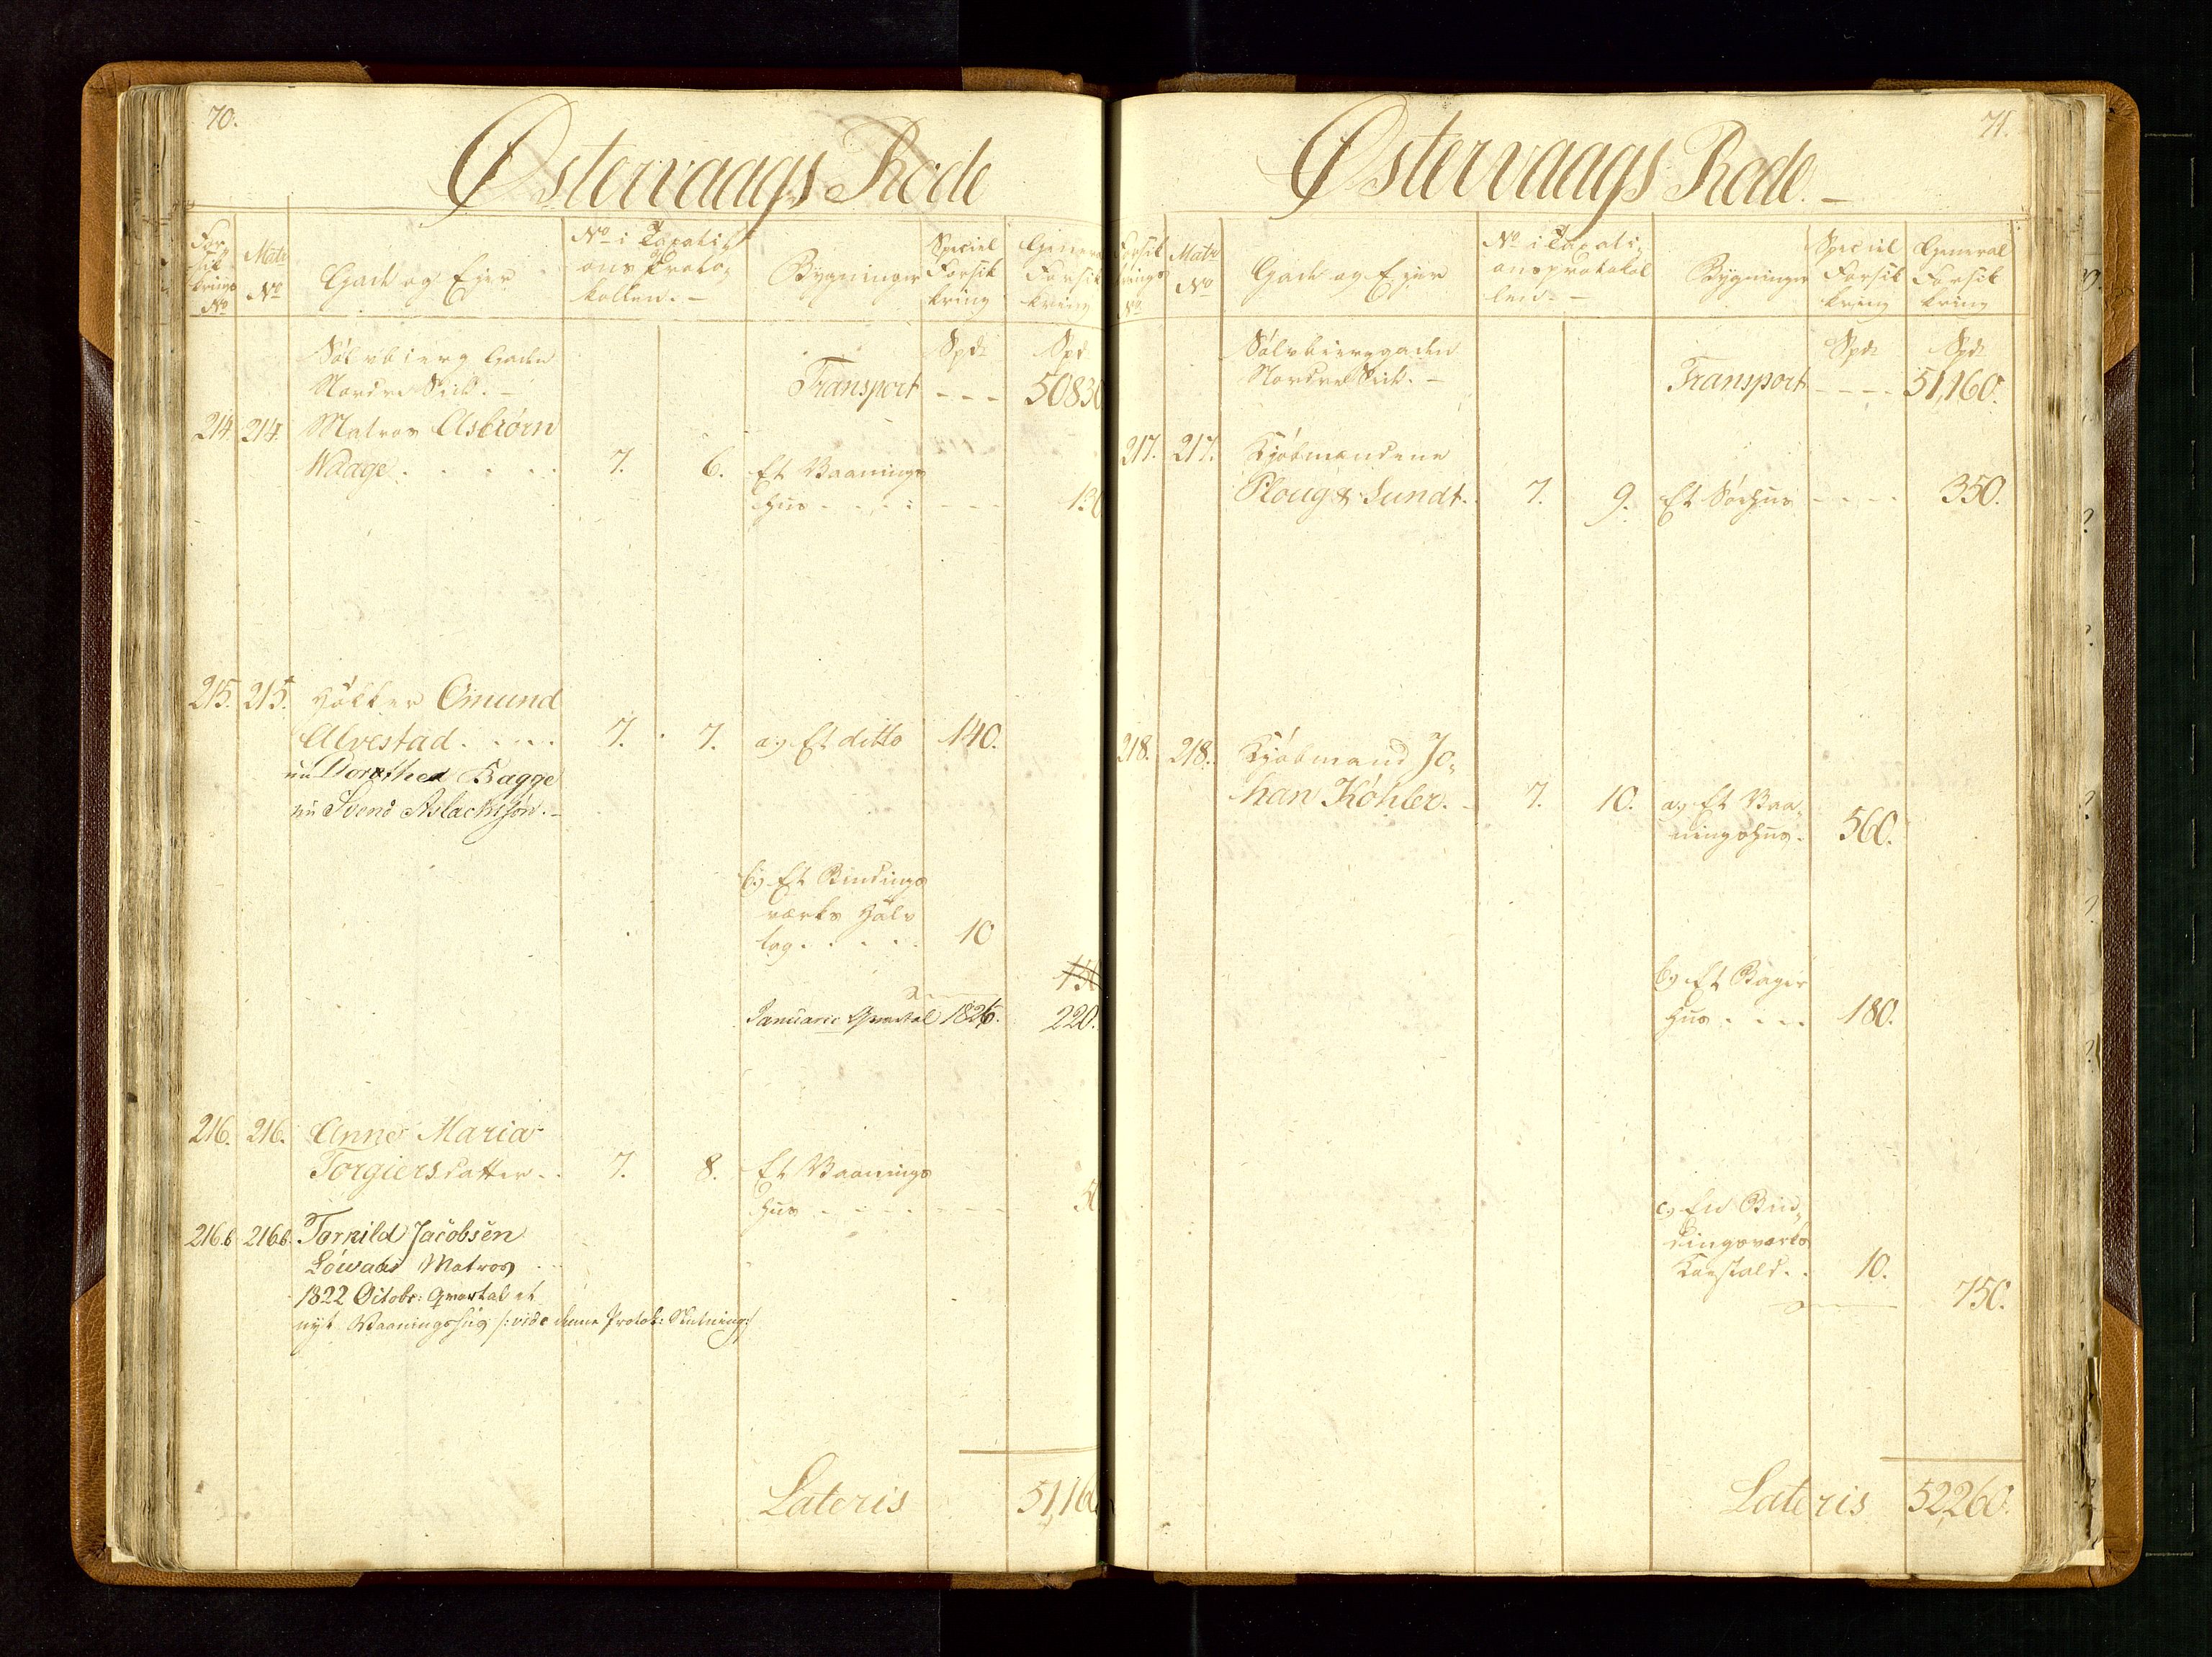 70.
Østervaags Rode
For-
sik
krings
No
Matr
No
Gade og Eier
No i Taxati-
ons Proto-
kollen. -
Bygninger
Speciel
Forsik
kring
General
Forsik
kring
Sølvbierg Gaden
Nordre Side. -
Spdr
Spd
Transport - - - 50830
214. 214. Matros Asbiørn
Waage . . . . . 7. 6. Et Vaanings
Huus . . . . - - - 130
215. 215. Høcker Omund
Alvestad . . . . 7. 7. a, Et ditto 140.
nu Dorothea Bagge
nu Svend Aslachsøn. -
b, Et Bindings
værks Halv
tag . . . . . 10
150
Januarii Qvartal 1826. 220.
216. 216. Anne Maria
Torgiersdatter . . 7. 8. Et Vaanings
Huus - - - - - - - 50
216.b 216.b. Torkild Jacobsen
Matros
1822 Octobr: Qvartal et
nyt Vaaningshuus /: vide denne Protok: Slutning :/
Lateris 51,160
71.
Østervaags Rode. -
Forsik
krings
No
Matr
No
Gade og Eier
No i Taxati-
onsprotokol
len. -
Bygninger
Speciel
Forsik
kring
General
Forsik
kring
Sølvbierggaden
Nordre Side. -
Spdr
Spdr
Transport - - - - 51,160.
217. 217. Kjøbmændene
Ploug & Sundt. 7. 9. Et Søehuus - - - - 350.
218. 218. Kjøbmand Jo-
han Køhler. - 7. 10. a, Et Vaa-
ningshuus. 560.
b, Et Bager
Huus . . . . 180.
c, En Bin-
dingsværks
Koestald. . 10.
750.
Lateris 52,260.